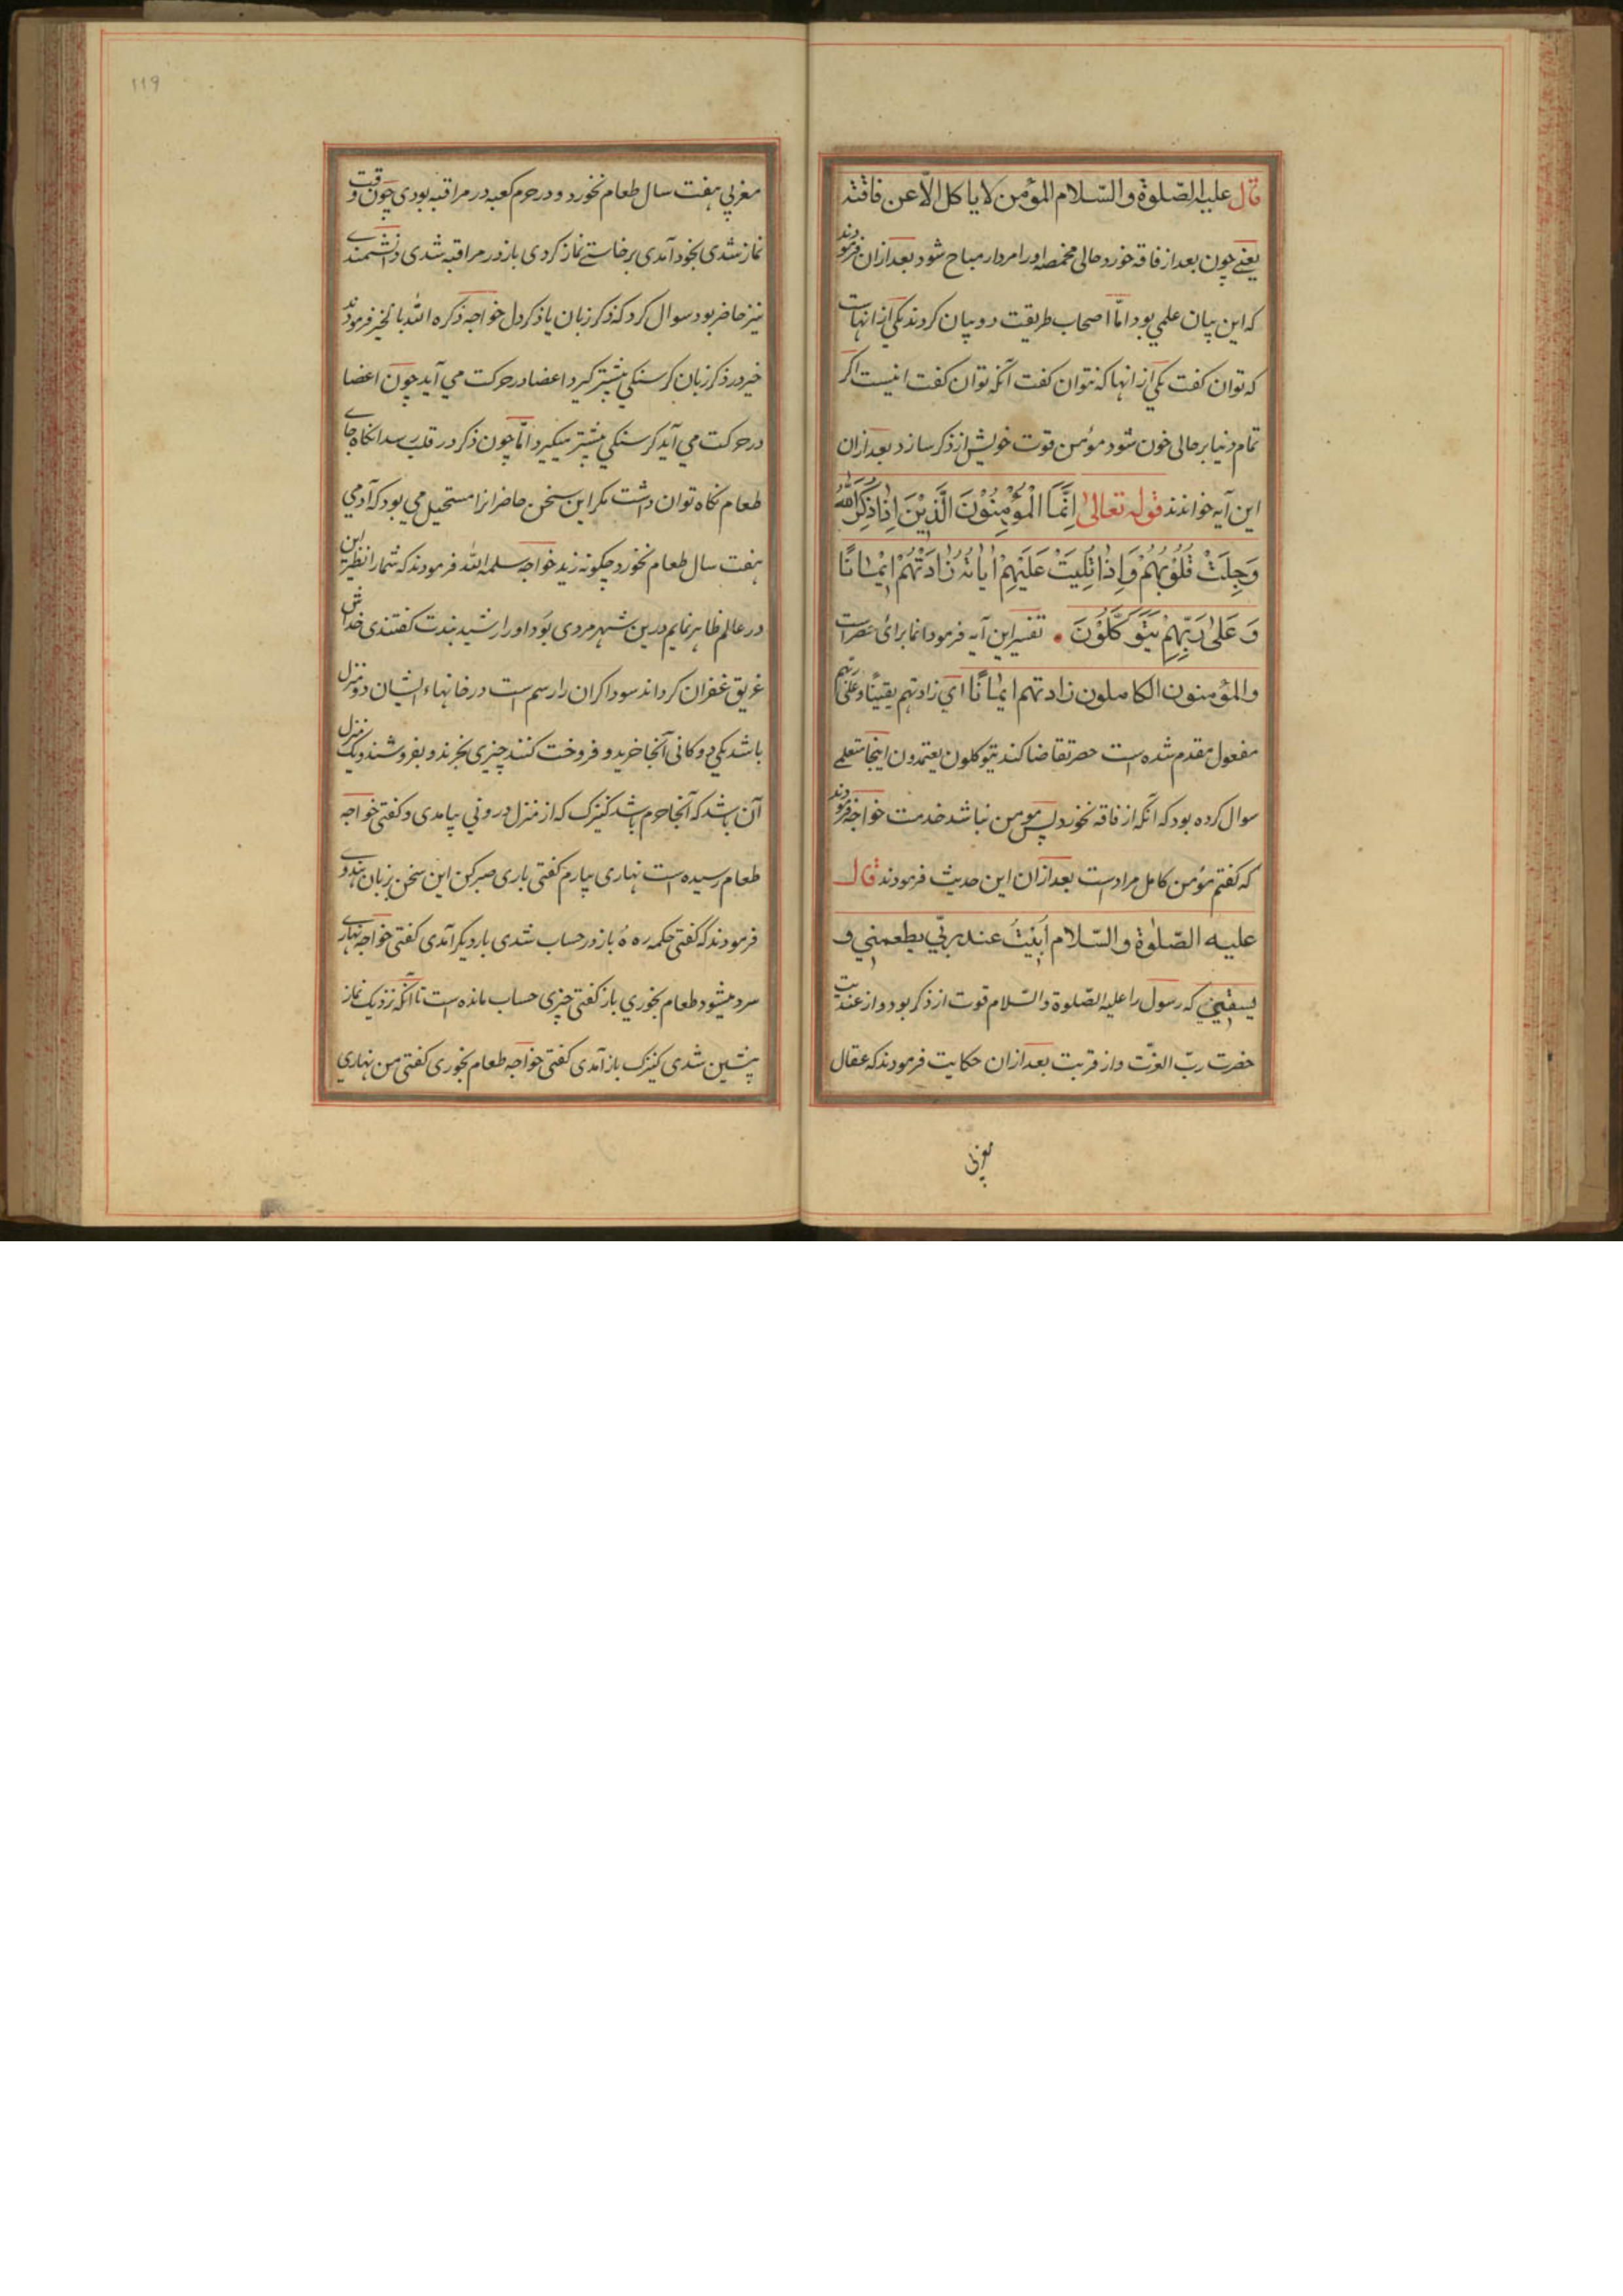 قال علیه الصّلوة والسّلام المؤمن لا یاکل الّا عن فاقته
یعنے چون بعد از فاقه خورد حالی مخمصه اورا مردار مباح شود بعد ازان فرمودند
که این بیان علمی بود امّا اصحاب طریقت دو بیان کردند یکی از انهاست
که توان کفت یکی از انها که نتوان کفت آنکه توان کفت اینست اکر
تمام دنیا بر حالی خون شود مؤمن قوت خویش از ذکر سازد بعد ازان
این آیه خواندند قوله تعالی اِنَّمَا الْمُؤْمِنُوْنَ الَّذِیْنَ اِذَا ذُکِرَ اللّٰهُ
وَجِلَتْ قُلُوْبُهُمْ وَاِذَا تُلِیَتْ عَلَیْهِمْ اٰیَاتُهُ زَادَتْهُمْ اِیْمَانًا
وَ عَلٰی رَبِّهِمْ یَتَوَکَّلُوْنَ تفسیر این آیه فرمود انما برای حصر است
والمؤمنون الکاملون زادتهم ایمانًا ای زادتهم یقینًا وعلی ربّهم
مفعول مقدم شده است حصر تقاضا کند یتوکلون یعتمدون اینجا متعلمی
سوال کرده بود که آنکه از فاقه نخورد پس مومن نباشد خدمت خواجه فرمودند
که کفتم مؤمن کامل مراد است بعد ازان این حدیث فرمودند قال
علیه الصّلوة والسّلام اَبِیْتُ عند ربّی یطعمنی و
یسقینی که رسول را علیه الصّلوة والسّلام قوت از ذکر بود و از عندیت
حضرت ربّ العزّت و از قربت بعد ازان حکایت فرمودند که عقال
مغربی
۱۱۹
مغربی هفت سال طعام نخورد و در حرم کعبه در مراقبه بودی چون وقت
نماز شدی بخود آمدی برخاستے نماز کردی باز در مراقبه شدی دانشمندے
نیز حاضر بود سوال کرد که ذکر زبان یا ذکر دل خواجه ذکره الله بالخیر فرمودند
خیر در ذکر زبان کرسنکی بیشتر کیرد اعضا در حرکت می آید چون اعضا
در حرکت می آید کرسنکی بیشتر میکیرد امّا چون ذکر در قلب رسد انکاه جاے
طعام نکاه توان داشت مکر این سخن حاضرانرا مستحیل می بود که آدمی
هفت سال طعام نخورد چکونه زید خواجه سلمه الله فرمودند که شمارا نظیر این
در عالم ظاهر نمایم درین شهر مردی بود اورا رشید بندت کفتندی خداش
غریق غفران کرداند سوداکران را رسم است در خانهاء ایشان دو منزل
باشد یکی دوکانی آنجا خرید و فروخت کنند چیزی بخرند و بفروشند و یک منزل
آن باشد که آنجا حرم باشد کنیزک که از منزل درونی بیامدی و کفتی خواجه
طعام رسیده است نهاری بیارم کفتی باری صبر کن این سخن بزبان هندوے
فرمودند که کفتی حکمه ره ه باز در حساب شدی بار دیکر آمدی کفتی خواجه نهارے
سرد میشود طعام بخوری باز کفتی چیزی حساب مانده است تا آنکه نزدیک نماز
پیشین شدی کنیزک باز آمدی کفتی خواجه طعام بخوری کفتی من نهاری